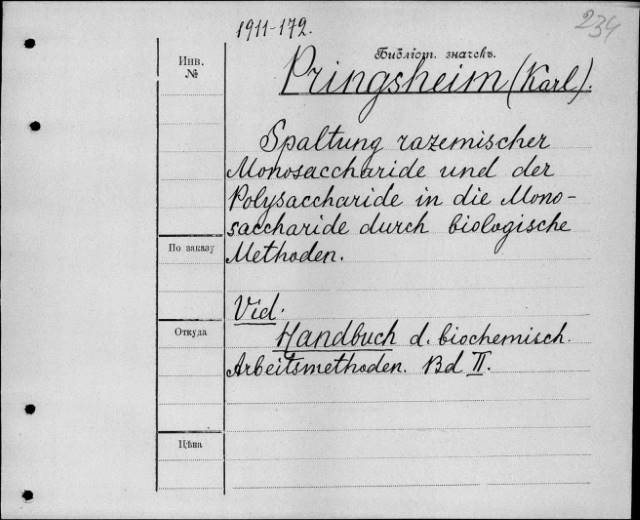 1911-172.
234
Инв.
№
Библіот. значекъ.
Pringsheim (Karl).
Spaltung razemischer
Monosaccharide und der
Polysaccharide in die Mono-
saccharide durch biologische
Methoden.
По заказу
Vid.
Откуда
Handbuch d. biochemisch.
Arbeitsmethoden. Bd II.
Цѣна